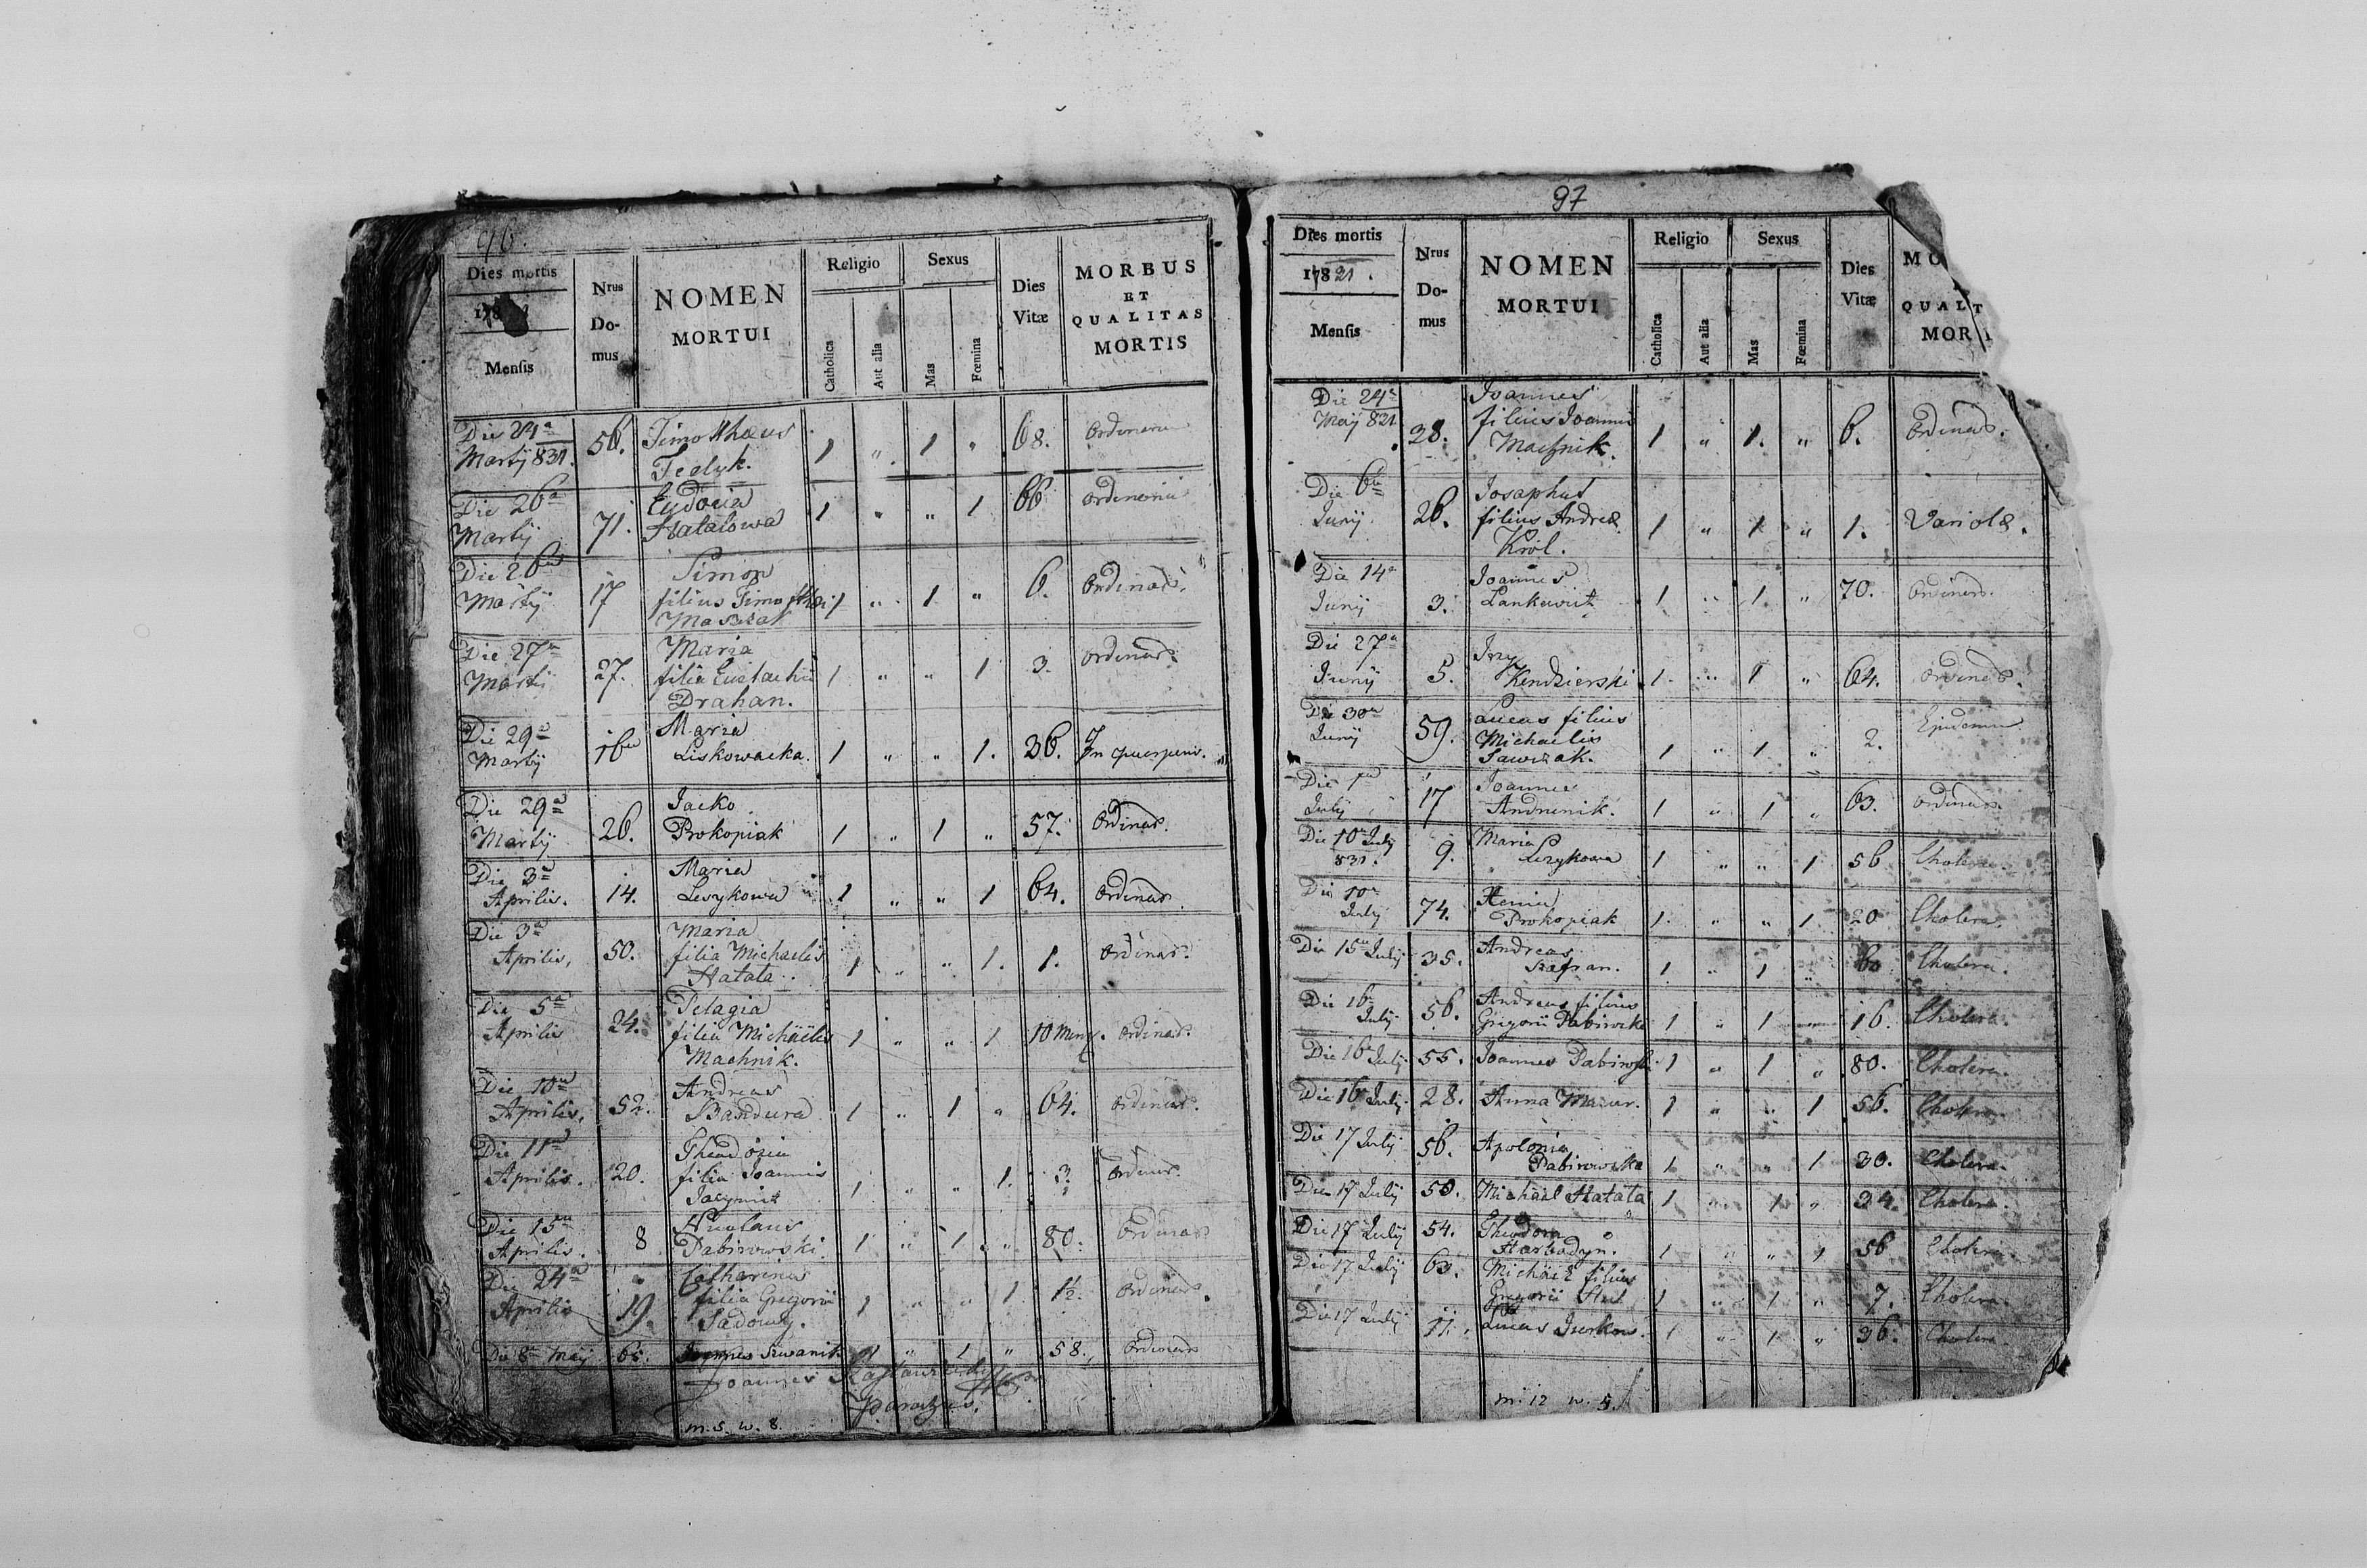 96.
Dies mortis
178
Mensis
Nrus
Do-
mus
NOMEN
MORTUI
Religio
Catholica
Aut alia
Sexus
Mas
Fœmina
Dies
Vitæ
MORBUS
ET
QUALITAS
MORTIS
Die 21a
Martij 831.
56.
Timotheus
Fedyk.
1 " 1 " 68. Ordinaria
Die 26a
Martij
71.
Eudocia
Hatalowa
1 " " 1 66 Ordinaria
Die 26a
Martij
17
Simon
filius Timothei
1 " 1 " 6. Ordinar.
Die 27a
Martij
27.
Maria
filia Eustachii
Drahan.
1 " " 1 3. Ordinar.
Die 29a
Martij
16a
Maria
Liskowacka.
1 " " 1. 36. In puerperio.
Die 29a
Martij
26.
Jacko
Prokopiak
1 " 1 " 57. Ordinar.
Die 3a
Aprilis.
14.
Maria
Lesykowa
1 " " 1 64. Ordinar.
Die 3a
Aprilis.
50.
Maria
filia Michaelis
Hatala.
1 " " 1. 1. Ordinar.
Die 5a
Aprilis
24.
Pelagia
filia Michäelis
Machnik.
1 " " 1 10 Mens. Ordinar.
Die 10a
Aprilis.
52.
Andreas
Bandura
1 " 1 " 64. Ordinar.
Die 11a
Aprilis.
20.
Theodosia
filia Joannis
1 " " 1. 3. Ordinar.
Die 15a
Aprilis.
8
Nicolaus
Pabirowski.
1 " 1 " 80. Ordinar.
Die 24a
Aprilis
19.
Catharina
filia Gregorii
Sadowy.
1 " " 1 1½. Ordinar.
Die 8a Maij 65. Joannes Szwanik 1 " 1 " 58. Ordinar.
Joannes
Parochus.
m. 5 w. 8.
97
Dies mortis
178 31.
Mensis
Nrus
Do-
mus
NOMEN
MORTUI
Religio
Catholica
Aut alia
Sexus
Mas
Fœmina
Dies
Vitæ
MO
QUALT
MOR
Die 24a
Maij 831.
28.
Joannes
filius Joannis
Machnik.
1 " 1. " 6. Ordinar.
Die 6a
Junij
26.
Josaphat
filius Andreæ
Król.
1 " 1 " 1. Variolæ.
Die 14a
Junij
3.
Joannes
Lankewict
1 " 1. " 70. Ordinar.
Die 27a
Junij
5.
Kendzierski
1. " 1 " 64. Ordinar.
Die 30a
Junij
59.
Lucas filius
Michaelis
Sawczak.
1 " 1 " 2. Epidemia
Die 7a
Julij
17
Joannes
Andrunik.
1 " 1 " 63. Ordinar.
Die 10a Julij
831.
9.
Maria
Lezykowa
1 " " 1 56 Cholera
Die 10a
Julij
74.
Xenia
Prokopiak
1. " " 1. 20 Cholera.
Die 15a Julij
35.
Andreas
Szafran.
1 " 1 " 60 Cholera.
Die 16
Julij
56.
Andreas filius
Gregorii Pabirowski
1 " 1 " 16. Cholera.
Die 16 Julij 55. Joannes Pabirowski 1 " 1 " 80. Cholera.
Die 16 Julij 28. Anna Mazur. 1 " " 1 56. Cholera.
Die 17 Julij 56.
Apolonia
Pabirowska
1 " " 1 30. Cholera.
Die 17 Julij 50. Michäel Hatala 1 " 1 " 34. Cholera.
Die 17 Julij 54.
Theodora
Harbadyn.
1 " " 1 56 Cholera.
Die 17 Julij 63.
Michäel filius
Gregorii
1 " 1 " 7. Cholera.
Die 17 Julij 11. Lucas 1 " 1 " 36. Cholera
m. 12 w. 5.